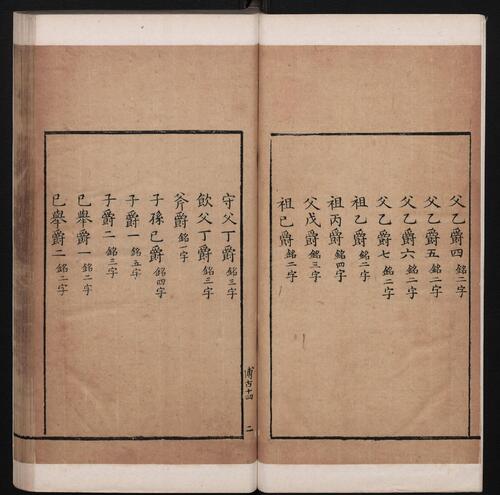 父乙爵四 銘二字
父乙爵五 銘二字
父乙爵六 銘二字
父乙爵七 銘二字
祖乙爵 銘二字
祖丙爵 銘四字
父戊爵 銘三字
祖己爵 銘二字
守父丁爵 銘三字
飲父丁爵 銘三字
斧爵 銘一字
子孫己爵 銘四字
子爵一 銘五字
子爵二 銘三字
己舉爵一 銘二字
己舉爵二 銘二字
博古十四
二